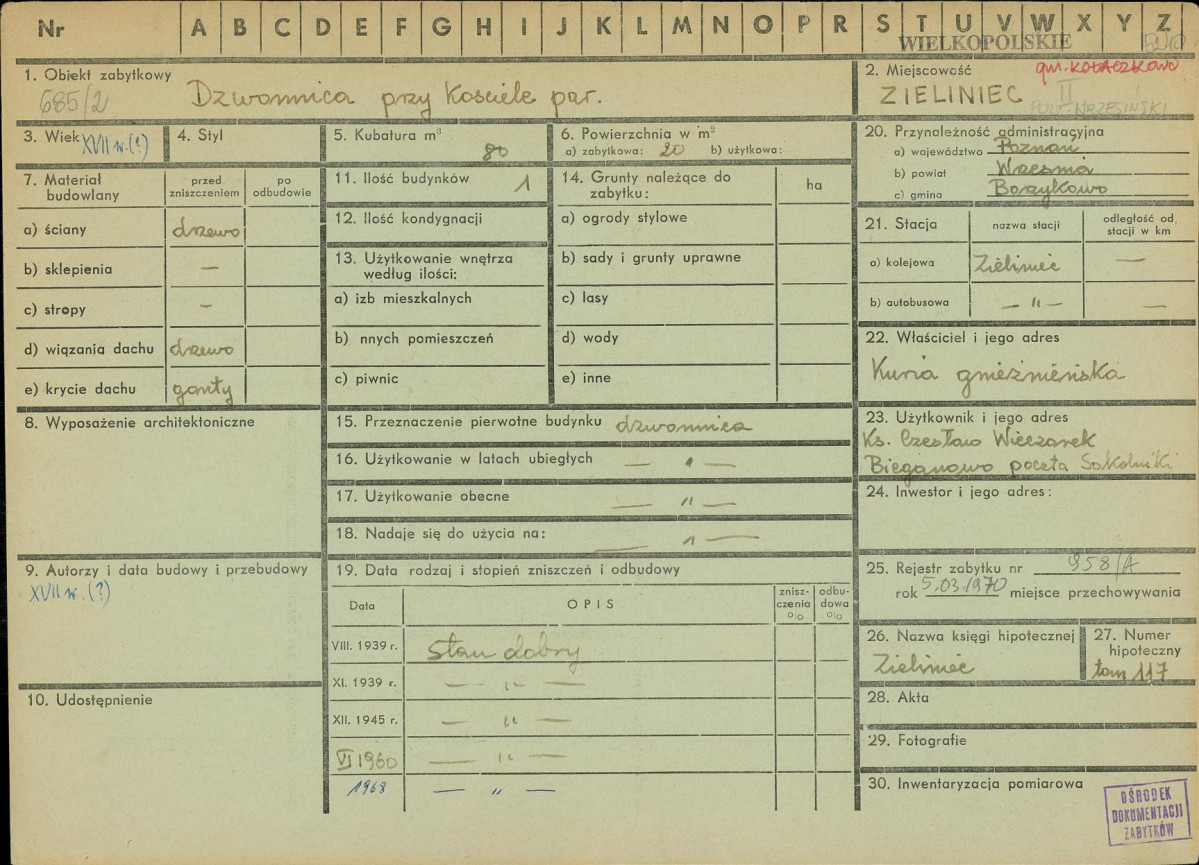 Nr A B C D E F G H I J K L M N O P R S T U V W X Y Z
WIELKOPOLSKIE
1. Obiekt zabytkowy
685/2 Dzwonnica przy Kościele par.
2. Miejscowość gm. KOŁACZKOWO
ZIELINIEC II
POW. WRZESIŃSKI
3. Wiek XVII w. (?)
4. Styl
5. Kubatura m³
80
6. Powierzchnia w m²
a) zabytkowa: 20 b) użytkowa:
20. Przynależność administracyjna
a) województwo Poznań
b) powiat Września
c) gmina Borzykowo
7. Materiał budowlany
przed zniszczeniem
po odbudowie
a) ściany drzewo
b) sklepienia —
c) stropy —
d) wiązania dachu drzewo
e) krycie dachu gonty
11. Ilość budynków 1
12. Ilość kondygnacji
13. Użytkowanie wnętrza
według ilości:
a) izb mieszkalnych
b) nnych pomieszczeń
c) piwnic
14. Grunty należące do
zabytku:
ha
a) ogrody stylowe
b) sady i grunty uprawne
c) lasy
d) wody
e) inne
21. Stacja
nazwa stacji
odległość od
stacji w km
a) kolejowa Zieliniec —
b) autobusowa — " — —
22. Właściciel i jego adres
Kuria gnieźnieńska
8. Wyposażenie architektoniczne
15. Przeznaczenie pierwotne budynku dzwonnica
16. Użytkowanie w latach ubiegłych — " —
17. Użytkowanie obecne — " —
18. Nadaje się do użycia na: — " —
23. Użytkownik i jego adres
Ks. Czesław Wieczorek
Bieganowo poczta Sokolniki
24. Inwestor i jego adres:
9. Autorzy i data budowy i przebudowy
XVII w. (?)
10. Udostępnienie
19. Data rodzaj i stopień zniszczeń i odbudowy
Data
OPIS
znisz-
czenia
%
odbu-
dowa
%
VIII. 1939 r. stan dobry
XI. 1939 r. — " —
XII. 1945 r. — " —
VI 1960 — " —
1968 — " —
25. Rejestr zabytku nr 958/A
rok 5.03.1970 miejsce przechowywania
26. Nazwa księgi hipotecznej
Zieliniec
27. Numer
hipoteczny
tom 117
28. Akta
29. Fotografie
30. Inwentaryzacja pomiarowa
OŚRODEK
DOKUMENTACJI
ZABYTKÓW